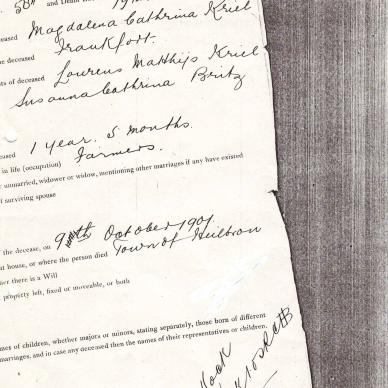 and Death
eceased Magdalena Cathrina Kriel
he deceased Frankfort.
nts of deceased Lourens Matthijs Kriel
Susanna Cathrina Britz
ceased 1 year. 5 months.
in life (occupation) Farmers.
r unmarried, widower or widow, mentioning other marriages if any have existed
l surviving spouse
the decease, on 9th October 1901.
at house, or where the person died Town of Heilbron
her there is a Will
property left, fixed or moveable, or both
mes of children, whether majors or minors, stating separately, those born of different
marriages, and in case any deceased then the names of their representatives or children.